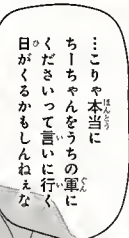 …こりゃ本当に
ちーちゃんをうちの軍に
くださいって言いに行く
日がくるかもしんねぇな